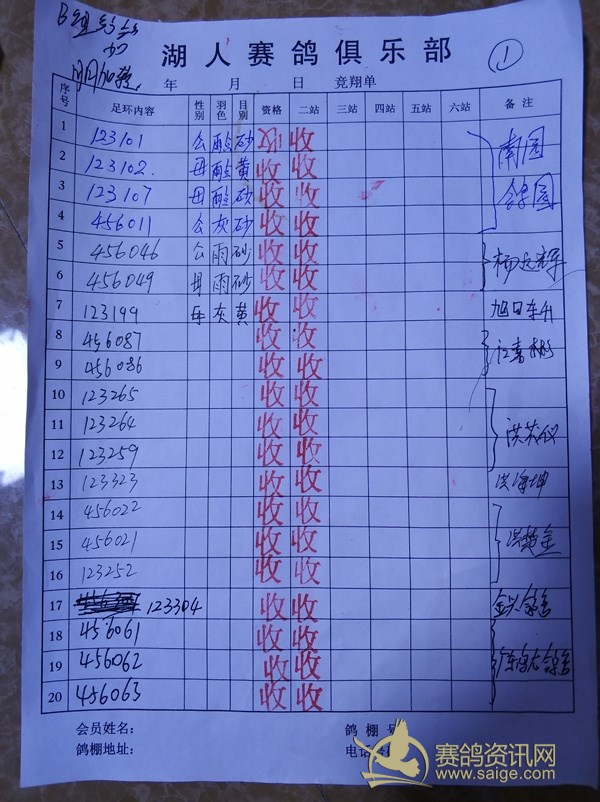 湖人赛鸽俱乐部
①
年 月 日 竞翔单
序号 足环内容 性别 羽色 目别 资格 二站 三站 四站 五站 六站 备注
1 123101 公 砂 收 收
2 123102 母 黄 收 收 南园
3 123107 母 砂 收 收
4 456011 公 灰 砂 收 收
5 456046 公 雨 砂 收 收
6 456049 母 雨 砂 收 收
7 123199 母 灰 黄 收 收 旭日东升
8 456087 收 收
9 456086 收 收
10 123265 收 收
11 123264 收 收
12 123259 收 收
13 123323 收 收 洪海坤
14 456022 收 收
15 456021 收 收
16 123252 收 收
17 123304 收 收
18 456061 收 收
19 456062 收 收
20 456063 收 收
会员姓名: 鸽棚号
鸽棚地址: 电话
赛鸽资讯网
www.saige.com